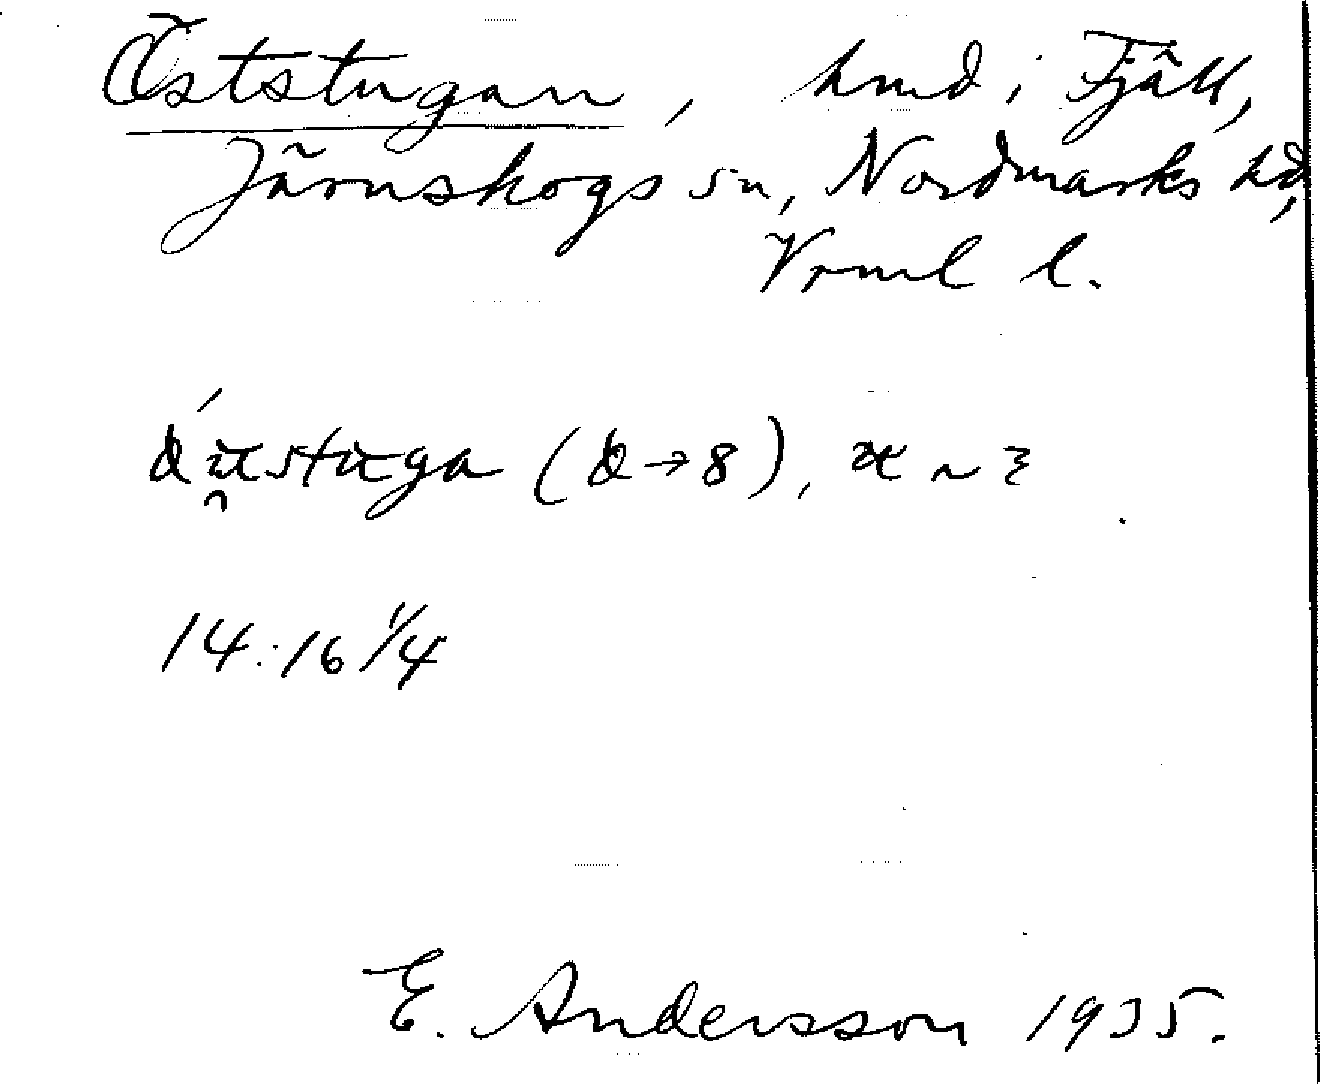 Öststugan, hmd i Fjäll,
Järnskogs sn, Nordmarks hd,
Vrml l.
14:16 1/4
E. Andersson 1935.